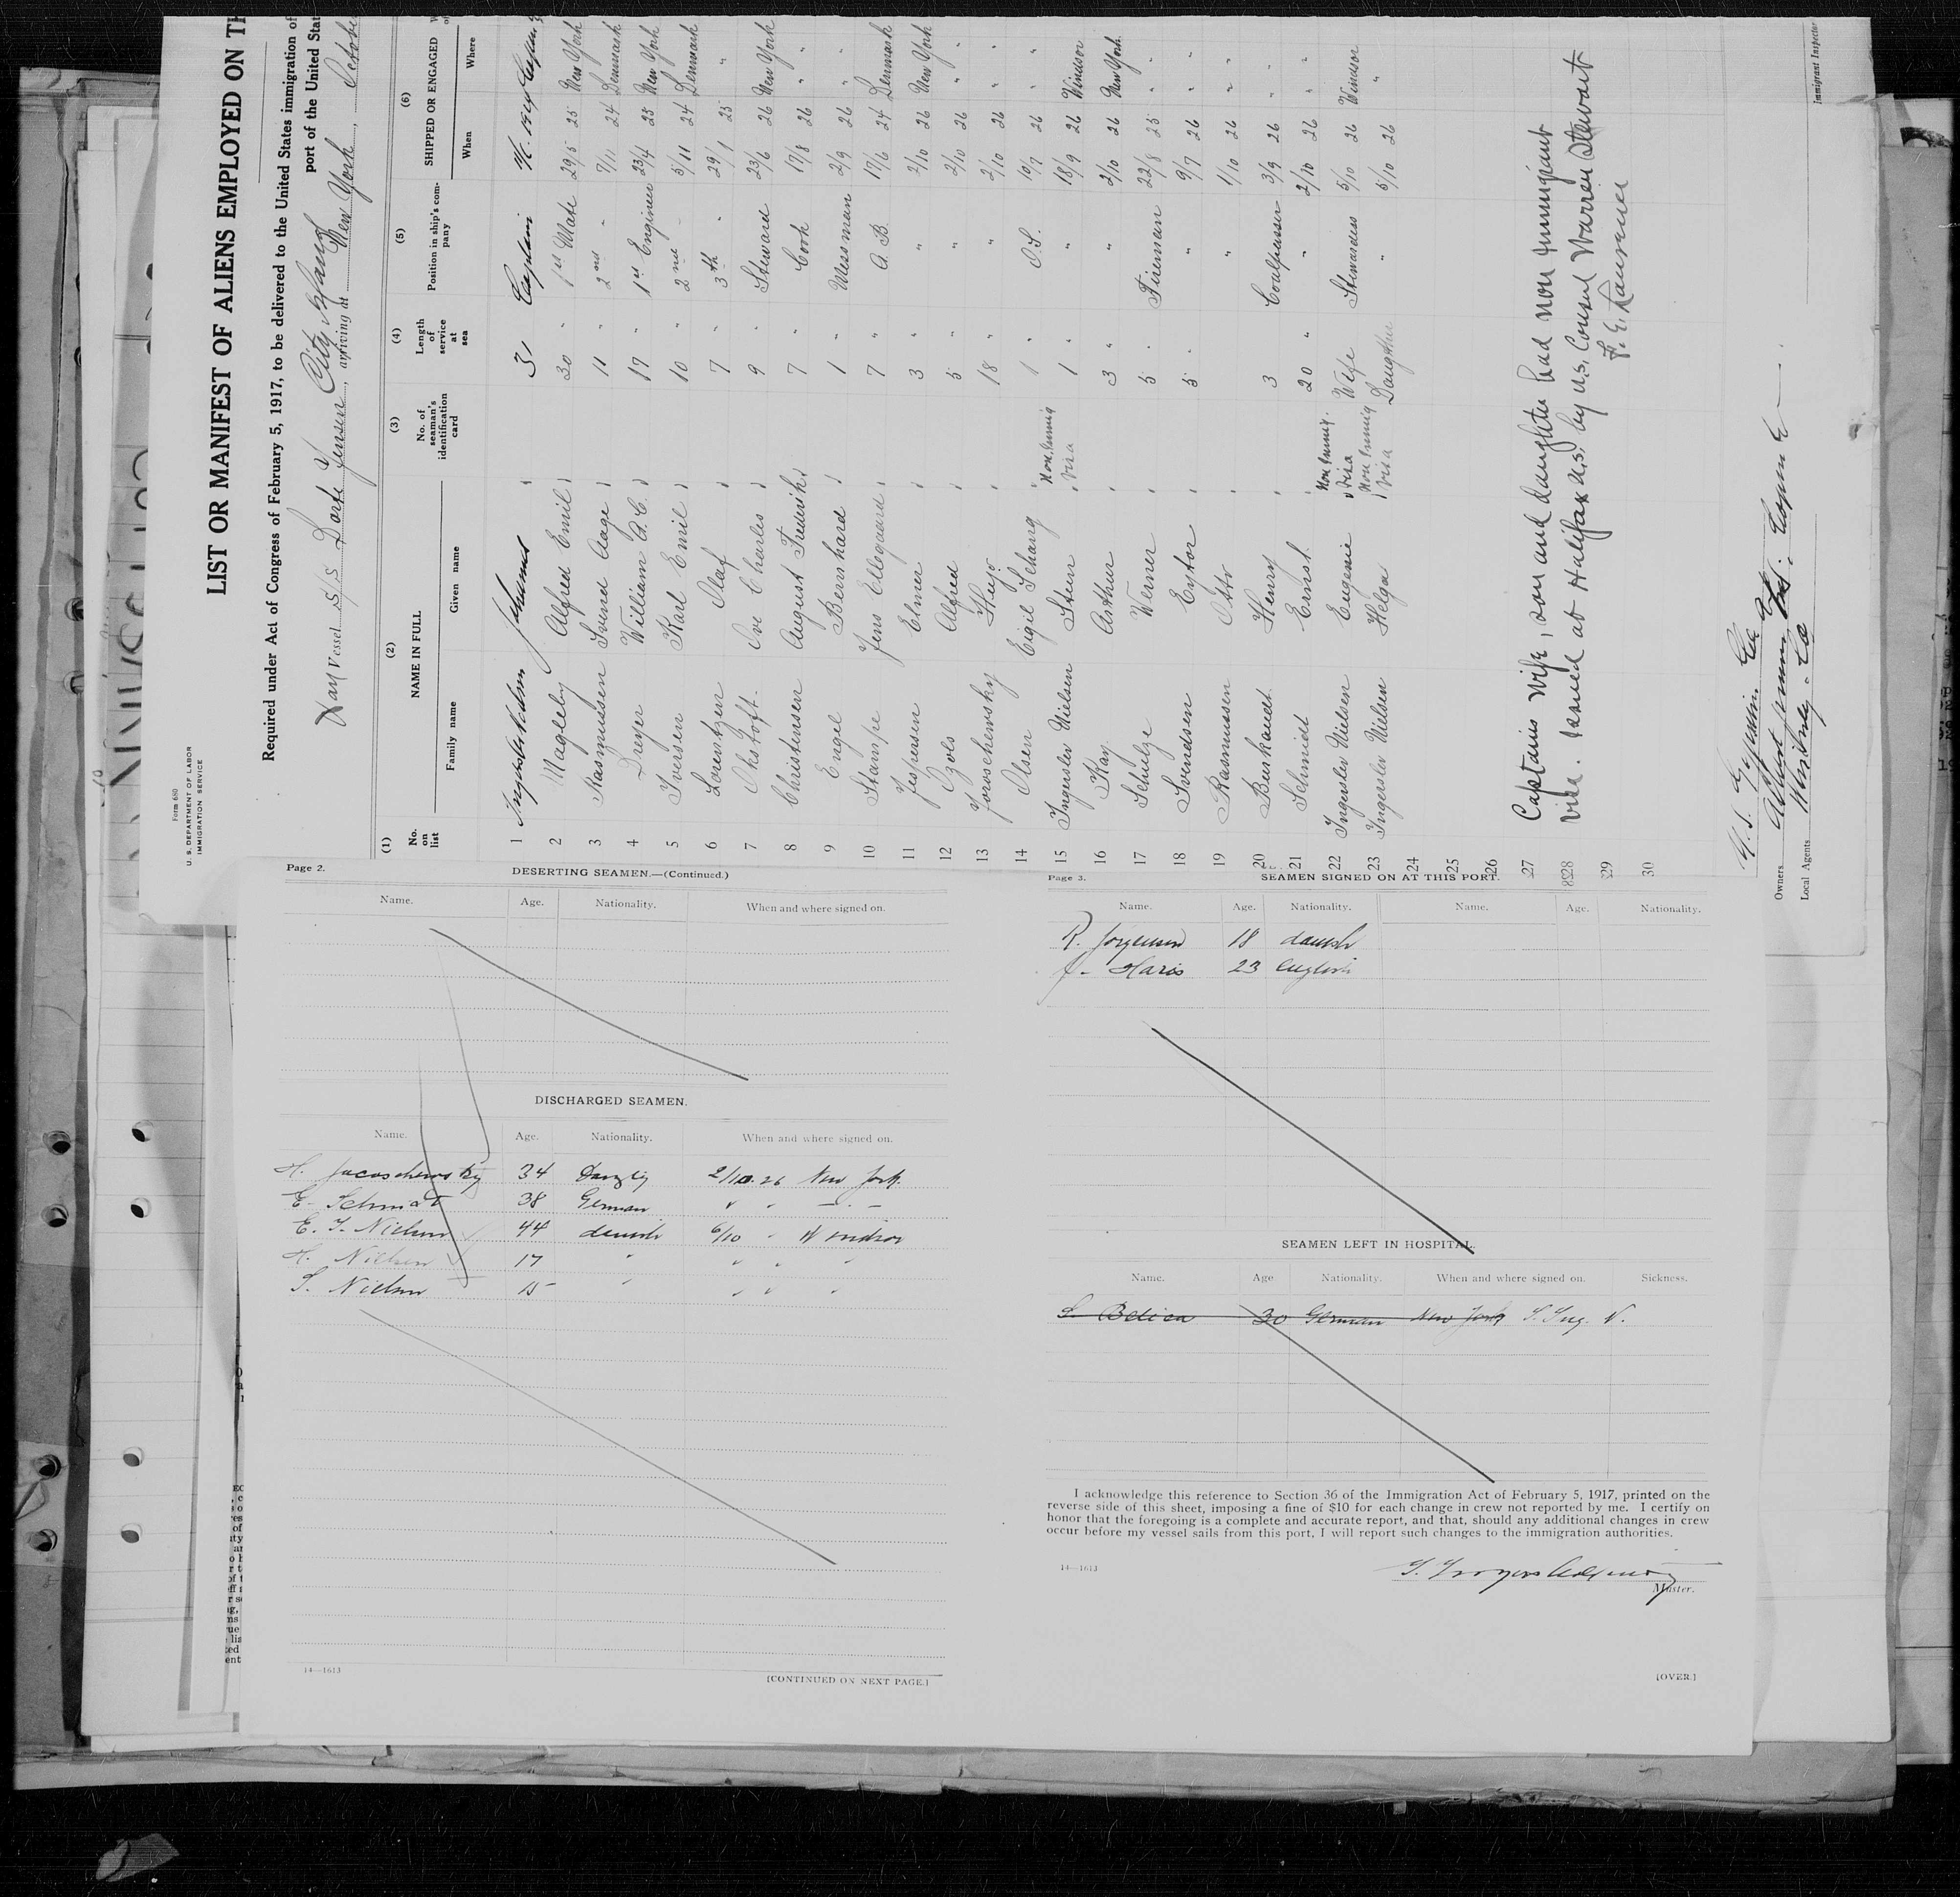 Form 680
U. S. DEPARTMENT OF LABOR
IMMIGRATION SERVICE
LIST OR MANIFEST OF ALIENS EMPLOYED ON TH
Required under Act of Congress of February 5, 1917, to be delivered to the United States immigration of
port of the United Stat
Vessel S/S Dorte Jensen, arriving at New York, Octobe
(1) (2) (3) (4) (5) (6)
No. on list NAME IN FULL No. of seaman's identification card Length of service at sea Position in ship's company SHIPPED OR ENGAGED
Family name Given name When Where
1 Johannes 31 Captain
2 Magleby Alfred Emil 30 " 1st Mate 29/5 25 New York
3 Rasmussen Svend Aage 11 " 2nd " 7/11 24 Denmark
4 Dreyer William A.C. 17 " 1st Engineer 23/4 25 New York
5 Iversen Karl Emil 10 " 2nd " 5/11 24 Denmark
6 Lorentzen Olaf 7 " 3th " 29/1 25 "
7 Ohstoft Ove Charles 9 " Steward 23/6 26 New York
8 Christensen August Frederik 7 " Cook 17/8 26 "
9 Engel Bernhard 1 " Messman 2/9 26 "
10 Stampe Jens Ellegaard 7 " A.B. 17/6 24 Denmark
11 Jespersen Elmer 3 " " 2/10 26 New York
12 Ozols Alfred 5 " " 2/10 26 "
13 Joroschewsky Hugo 18 " " 2/10 26 "
14 Olsen Eigil Schang 1 " O.S. 10/7 26 "
15 Ingerslev Nielsen Steen Non Immig Visa 1 " " 18/9 26 Windsor
16 Kay Arthur 3 " " 2/10 26 New York
17 Schulze Werner 5 " Fireman 22/8 25 "
18 Svendsen Eystor 5 " " 9/7 26 "
19 Rasmussen Otto " 1/10 26 "
20 Burkandt Henry 3 Coalpasser 3/9 26 "
21 Schmidt Ernst 20 " " 2/10 26 "
22 Ingerslev Nielsen Eugenie Non Immig. Visa Wife Stewardess 5/10 26 Windsor
23 Ingerslev Nielsen Helga Non Immig Visa Daughter " 5/10 26 "
24
25
26
27
28
29
30
Captains Wife, son and daughter had non immigrant
visa. Issued at Halifax N.S. by U.S. Consul Warren Stewart
Owners
Local Agents
Immigrant Inspector
Page 2.
DESERTING SEAMEN.—(Continued.)
Name. Age. Nationality. When and where signed on.
DISCHARGED SEAMEN.
Name. Age. Nationality. When and where signed on.
H. Jacoschewsky 34 Danzig 2/10. 26 New York
E. Schmidt 38 German " " — . —
E. I. Nielsen 44 danish 6/10 " Windsor
H. Nielsen 17 " " " "
S. Nielsen 15 " " " "
14—1613
[CONTINUED ON NEXT PAGE.]
Page 3.
SEAMEN SIGNED ON AT THIS PORT.
Name. Age. Nationality. Name. Age. Nationality.
R. Jorgensen 18 danish
J. Haris 23 English
SEAMEN LEFT IN HOSPITAL.
Name. Age Nationality. When and where signed on. Sickness.
S. Belica 30 German New York
I acknowledge this reference to Section 36 of the Immigration Act of February 5, 1917, printed on the
reverse side of this sheet, imposing a fine of $10 for each change in crew not reported by me. I certify on
honor that the foregoing is a complete and accurate report, and that, should any additional changes in crew
occur before my vessel sails from this port, I will report such changes to the immigration authorities.
14—1613
Master.
[OVER.]